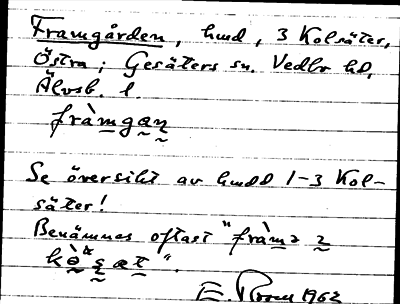 Framgården, hmd, 3 Kolsäter,
Östra; Gesäters sn. Vedbo hd,
Älvsb. l.
fràmgaṇ
Se översikt av hmdd 1-3 Kol-
säter!
Benämnes oftast "fràmə
kò sæt".
E. 1962